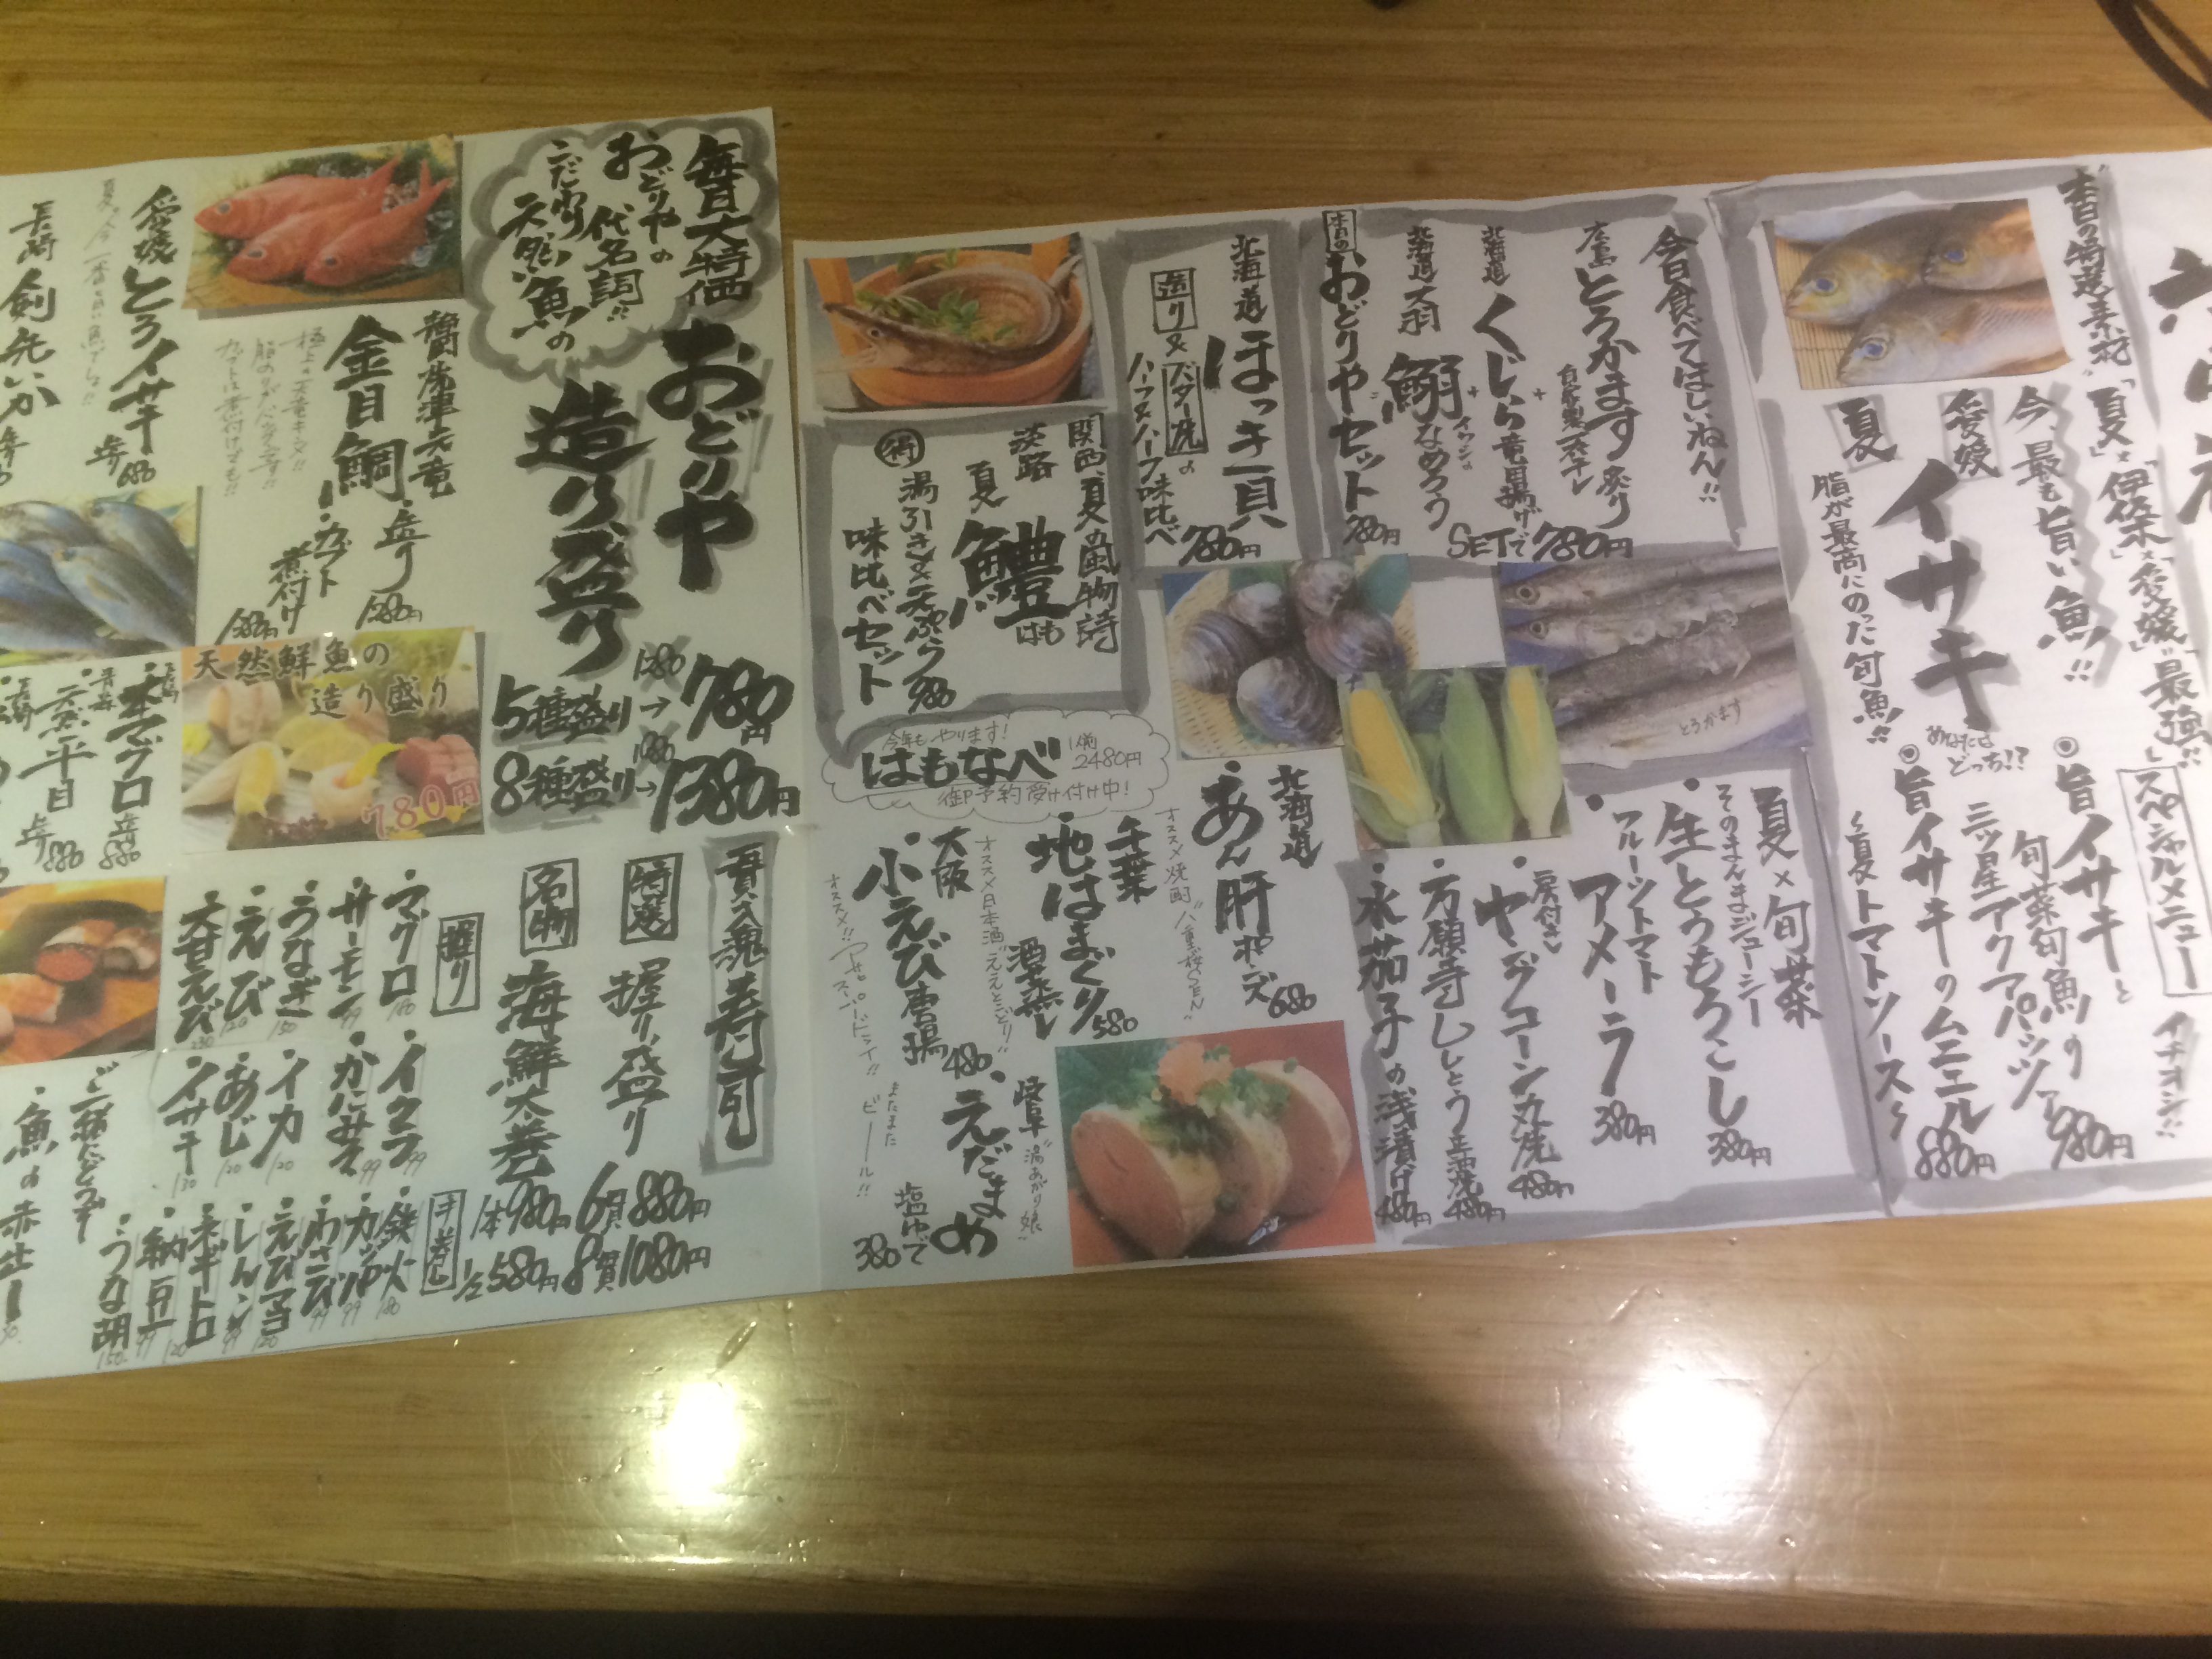 本日の特選素材
「夏」×「伊佐木」×「愛媛」=「最強」!!
今、最も旨い魚!!
愛媛
イサキ
夏
脂が最高にのった旬魚!!
あなたはどっち!?
スペシャルメニュー
イチオシ!!
旨イサキと
旬菜旬魚の
三ッ星アクアパッツァ
980円
旨イサキのムニエル
880円
〜夏トマトソース〜
今日食べてほしいねん!!
広島
とろかます炙り
自家製一夜干し
+
北海道
くじら竜田揚げ
+
北海道
大羽
鰯なめろう
イワシの
SETで780円
本日の
おどりやセット
780円
北海道
ほっき貝
造り&バター焼の
ハーフ&ハーフ味比べ
780円
とろかます
夏×旬菜
そのまんまジューシー
・生とうもろこし
380円
フルーツトマト
・アメーラ
380円
房付き
・ヤングコーン丸焼
480円
・万願寺ししとう正油焼
480円
・水茄子の浅漬け
480円
関西、夏の風物詩
淡路
夏
鱧
はも
特
湯引き&天ぷら
味比べセット
980
今年もやります!
はもなべ
1人前
2480円
御予約受け付け中!
北海道
・あん肝ポン酢
680
オススメ焼酎"八重桜SEN"
千葉
・地はまぐり
酒蒸し
580
オススメ日本酒"ええとどり"
大阪
・小えび唐揚
480
オススメ!!アサヒスーパードライ!!
岐阜"湯あがり娘"
・えだまめ
塩ゆで
380
またまた
ビール!!
毎日大特価
おどりやの
代名詞!!
こだわり
天然魚の
おどりや
造り盛り
5種盛り 1280→780円
8種盛り 1880→1380円
静岡焼津天竜
金目鯛
・造り
1280円
・カブト
煮付け
1380円
極上の天竜キンメ!!
脂のりがバツグンです!!
カブトは煮付けでも!!
愛媛
とろイサキ
造り680
夏、今一番旨い魚でしょ!!
長崎
剣先いか
天然鮮魚の
造り盛り
780円
長崎
・本マグロ
造り880
青森
・天然平目
造り880
吾入魂寿司
特選
握り盛り
6貫880円
8貫1080円
名物
海鮮大巻
1本980円
1/2 580円
握り
・マグロ180
・サーモン99
・うなぎ150
・えび120
・大甘えび230
・イクラ99
・かにみそ99
・イカ120
・あじ120
・イサキ130
手巻き
・鉄火180
・カッパ99
・わさび99
・えびマヨ120
・しんこ99
・ネギトロ120
・納豆99
・うな胡150
ご一緒にどうぞ
・魚の赤出し